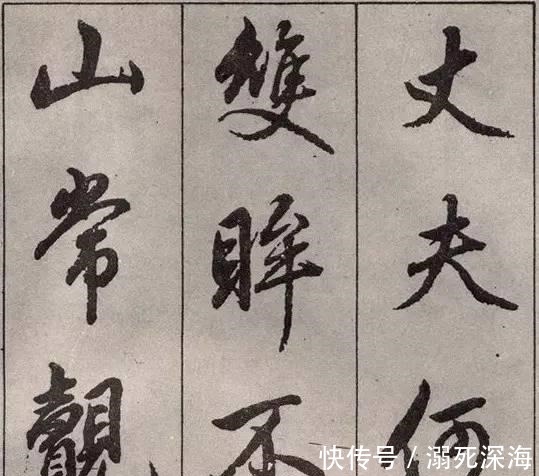 丈夫何
雙眸不
山常覿
快传号 / 溺死深海